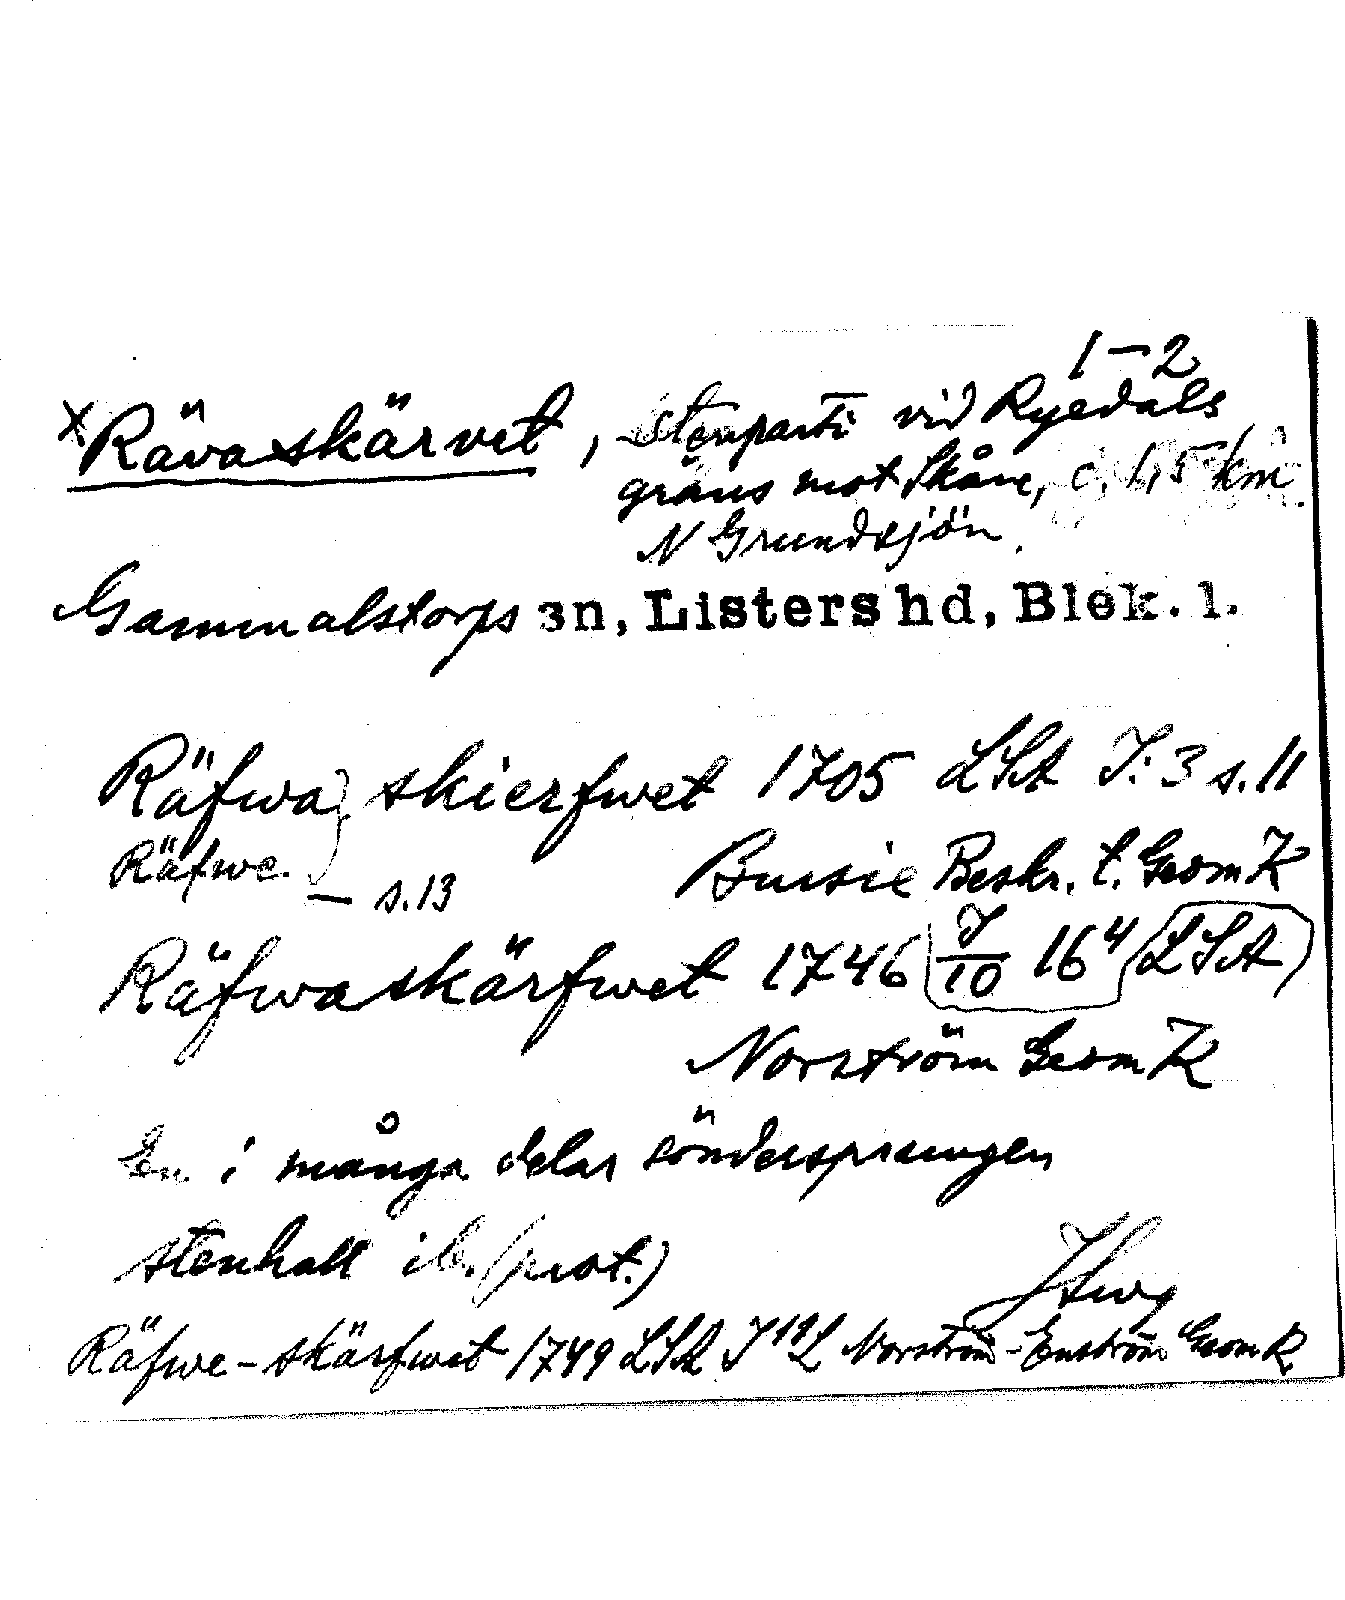 1–2
×Rävaskärvet, stenparti vid Ryedals
gräns mot Skåne, c. 1,5 km
N Grundsjön.
Gammalstorps sn, Listers hd, Blek. l.
Räfwa} skierfwet 1705 LSA I:3 s. 11
Räfwe. Bursie Beskr. t. GeomK
— s. 13
Räfwaskärfwet 1746 I/10 16⁴ (LSA)
Norström GeomK
En i många delar söndersprungen
stenhall ib. (prot.)
Räfwe-skärfwet 1749 LSA Norström-Enström GeomK